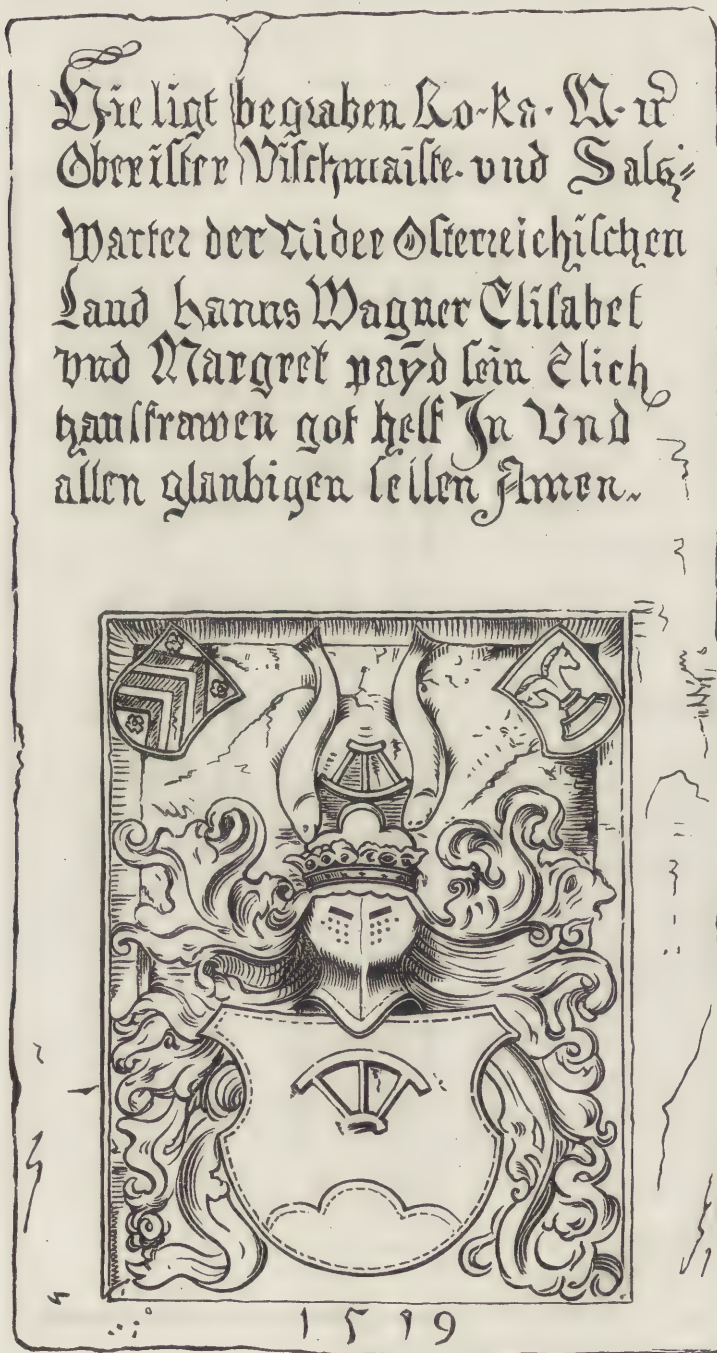 Hie ligt begraben Ro·ka·M·rͭ
Oberister Vischmaiste· vnd Saltz⸗
Warter der Nider Osterreichischen
Land hanns Wagner Elisabet
vnd Margret payd sein Elich
hausfrawen got helf In Vnd
allen glaubigen sellen Amen~
1519